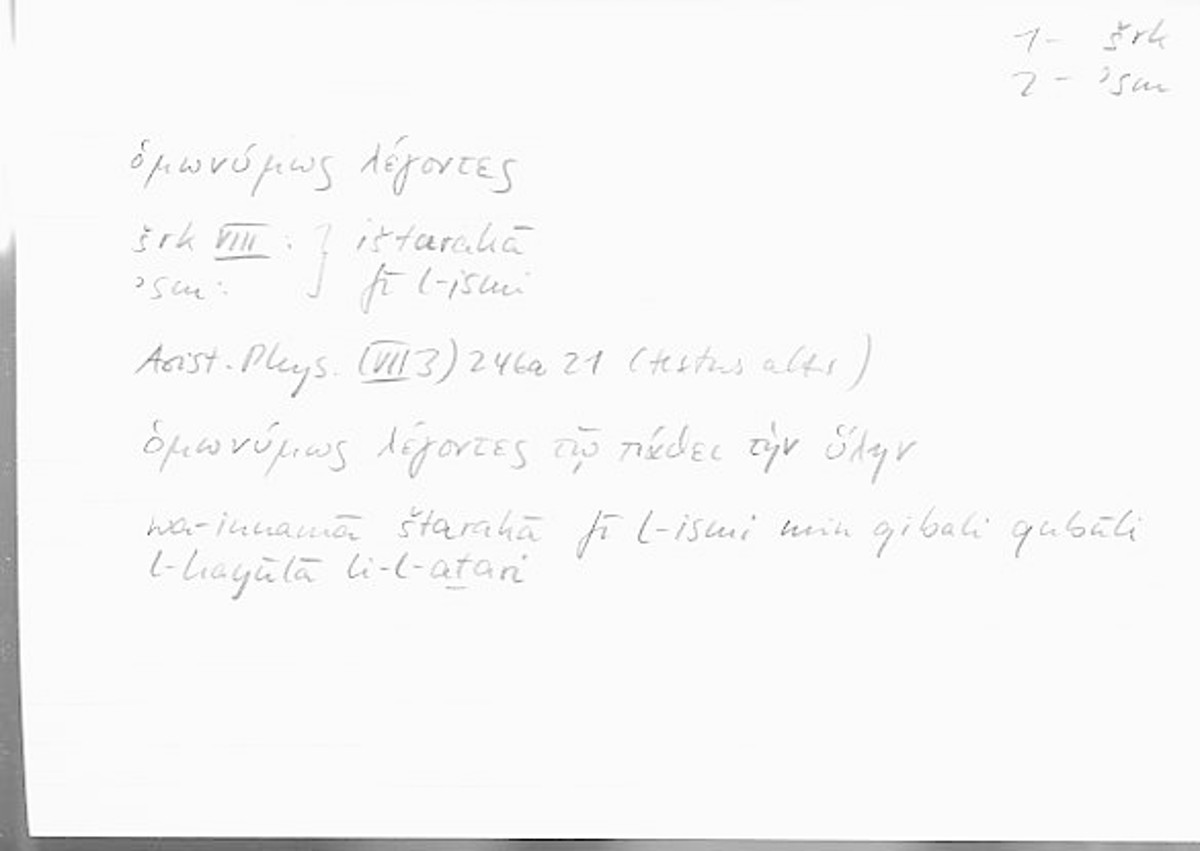 1- šrk
2- ʾsm
ὁμωνύμως λέγοντες
šrk VIII : } ištarakā
ʾsm : fī l-ismi
Arist. Phys. (VII 3) 246a 21 (textus alter)
ὁμωνύμως λέγοντες τῷ πάθει τὴν ὕλην
wa-innamā štarakā fī l-ismi min qibali qubūli
l-hayūlā li-l-aṯari